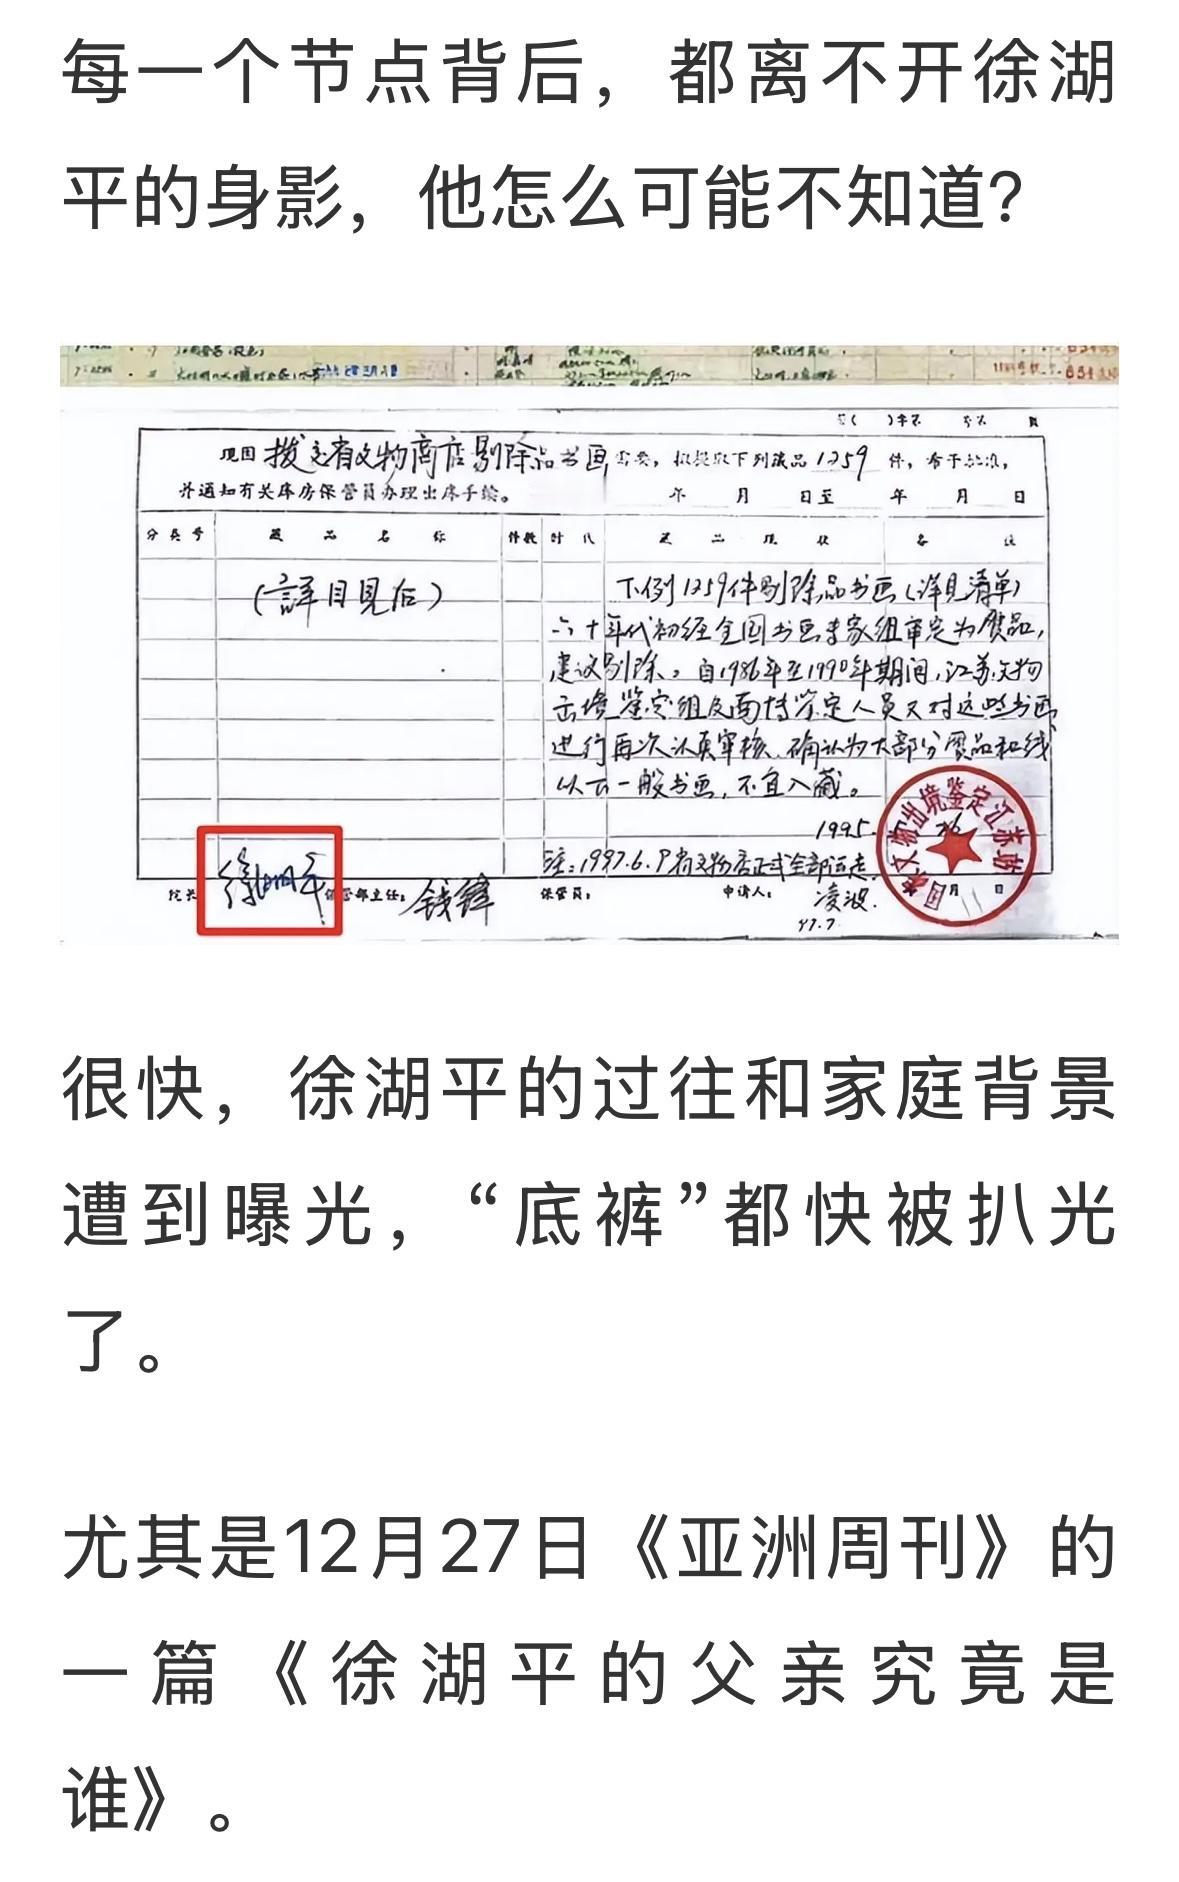 每一个节点背后，都离不开徐湖
平的身影，他怎么可能不知道？
现因 拨交省文物商店剔除品书画 需要，拟提取下列藏品 1259 件，希予批准，
并通知有关库房保管员办理出库手续。 年 月 日至 年 月 日
分类号 藏品名称 件数 时代 藏品现状 备注
（详目见后）
下例1259件剔除品书画（详见清单）
六十年代初经全国书画专家组审定为赝品，
建议剔除。自1986年至1990年期间，江苏文物
出境鉴定组及面持鉴定人员又对这些书画
进行再次认真审核，确认为大部分赝品和线
以下一般书画，不宜入藏。
1995.
注：1997.6.9省文物店正式全部运走.
院长 徐湖平 保管部主任：钱锋 保管员： 申请人：凌波.
97.7
国家文物出境鉴定江苏站
月 日
很快，徐湖平的过往和家庭背景
遭到曝光，“底裤”都快被扒光
了。
尤其是12月27日《亚洲周刊》的
一篇《徐湖平的父亲究竟是
谁》。